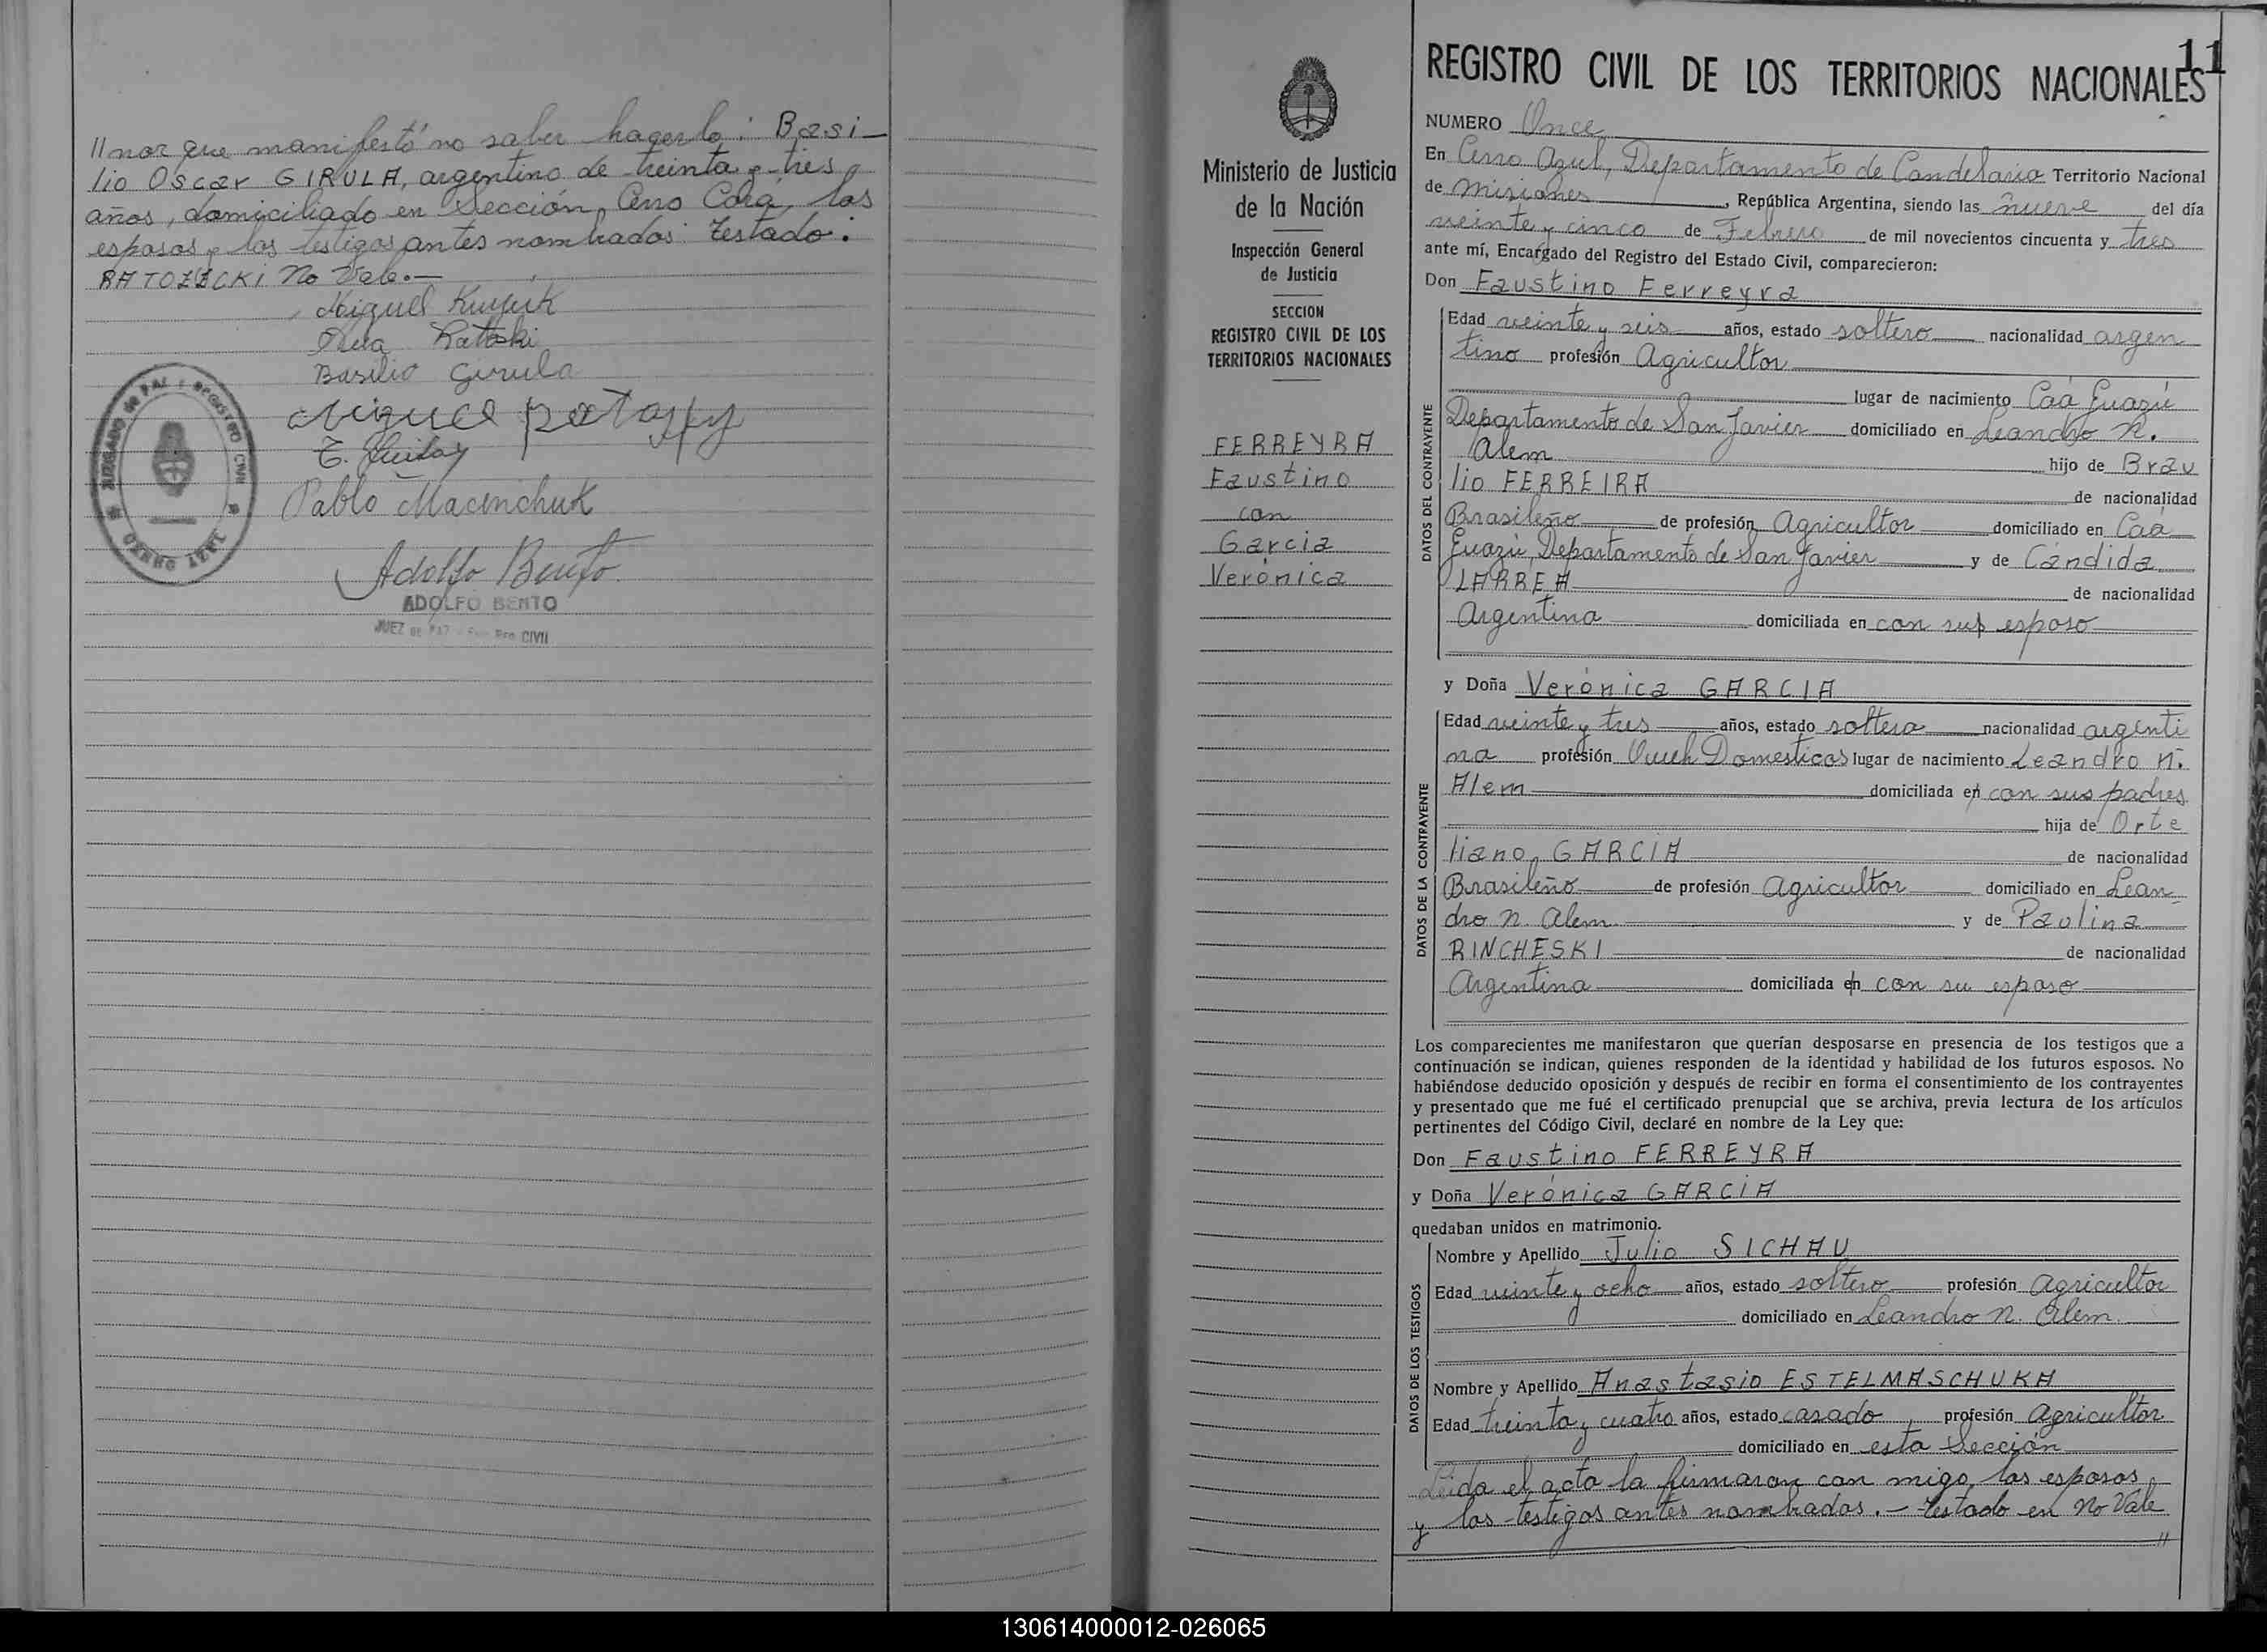 //nor que manifestó no saber hacerlo: Basi-
lio Oscar GIRULA, argentino de treinta y tres
años, domiciliado en Sección Cerro Corá, los
esposos y los testigos antes nombrados. Testado:
RATOZZCKI No Vale.—
Miguel
Basilio Girula
Miguel
Pablo Macinchuk
Adolfo Bento
ADOLFO BENTO
JUEZ DE PAZ Reg CIVIL
JUZGADO de PAZ y REGISTRO CIVIL
CERRO AZUL
11
Ministerio de Justicia
de la Nación
Inspección General
de Justicia
SECCION
REGISTRO CIVIL DE LOS
TERRITORIOS NACIONALES
FERREYRA
Faustino
con
Garcia
Verónica
REGISTRO CIVIL DE LOS TERRITORIOS NACIONALES
NUMERO Once
En Cerro Azul, Departamento de Candelaria Territorio Nacional
de Misiones, República Argentina, siendo las nueve del día
veinte y cinco de Febrero de mil novecientos cincuenta y tres
ante mí, Encargado del Registro del Estado Civil, comparecieron:
Don Faustino Ferreyra
DATOS DEL CONTRAYENTE
Edad veinte y seis años, estado soltero nacionalidad argen
tino profesión Agricultor
lugar de nacimiento Caá Guazú
Departamento de San Javier domiciliado en Leandro N.
Alem hijo de Brau
lio FERREIRA de nacionalidad
Brasileño de profesión Agricultor domiciliado en Caá
Guazú, Departamento de San Javier y de Cándida
LARREA de nacionalidad
Argentina domiciliada en con sus esposo
y Doña Verónica GARCIA
DATOS DE LA CONTRAYENTE
Edad veinte y tres años, estado soltera nacionalidad argenti
na profesión Queh Domesticos lugar de nacimiento Leandro N.
Alem domiciliada en con sus padres
hija de Orte
liano GARCIA de nacionalidad
Brasileño de profesión Agricultor domiciliado en Lean-
dro N. Alem y de Paulina
RINCHESKI de nacionalidad
Argentina domiciliada en con su esposo
Los comparecientes me manifestaron que querían desposarse en presencia de los testigos que a
continuación se indican, quienes responden de la identidad y habilidad de los futuros esposos. No
habiéndose deducido oposición y después de recibir en forma el consentimiento de los contrayentes
y presentado que me fué el certificado prenupcial que se archiva, previa lectura de los artículos
pertinentes del Código Civil, declaré en nombre de la Ley que:
Don Faustino FERREYRA
y Doña Verónica GARCIA
quedaban unidos en matrimonio.
DATOS DE LOS TESTIGOS
Nombre y Apellido Julio SICHAU
Edad veinte y ocho años, estado soltero profesión Agricultor
domiciliado en Leandro N. Alem.
Nombre y Apellido Anastasio ESTELMASCHUKA
Edad treinta y cuatro años, estado casado, profesión Agricultor
domiciliado en esta Sección
Leida el acta la firmaron con migo, los esposos
y los testigos antes nombrados.— Testado en No Vale
//
130614000012-026065